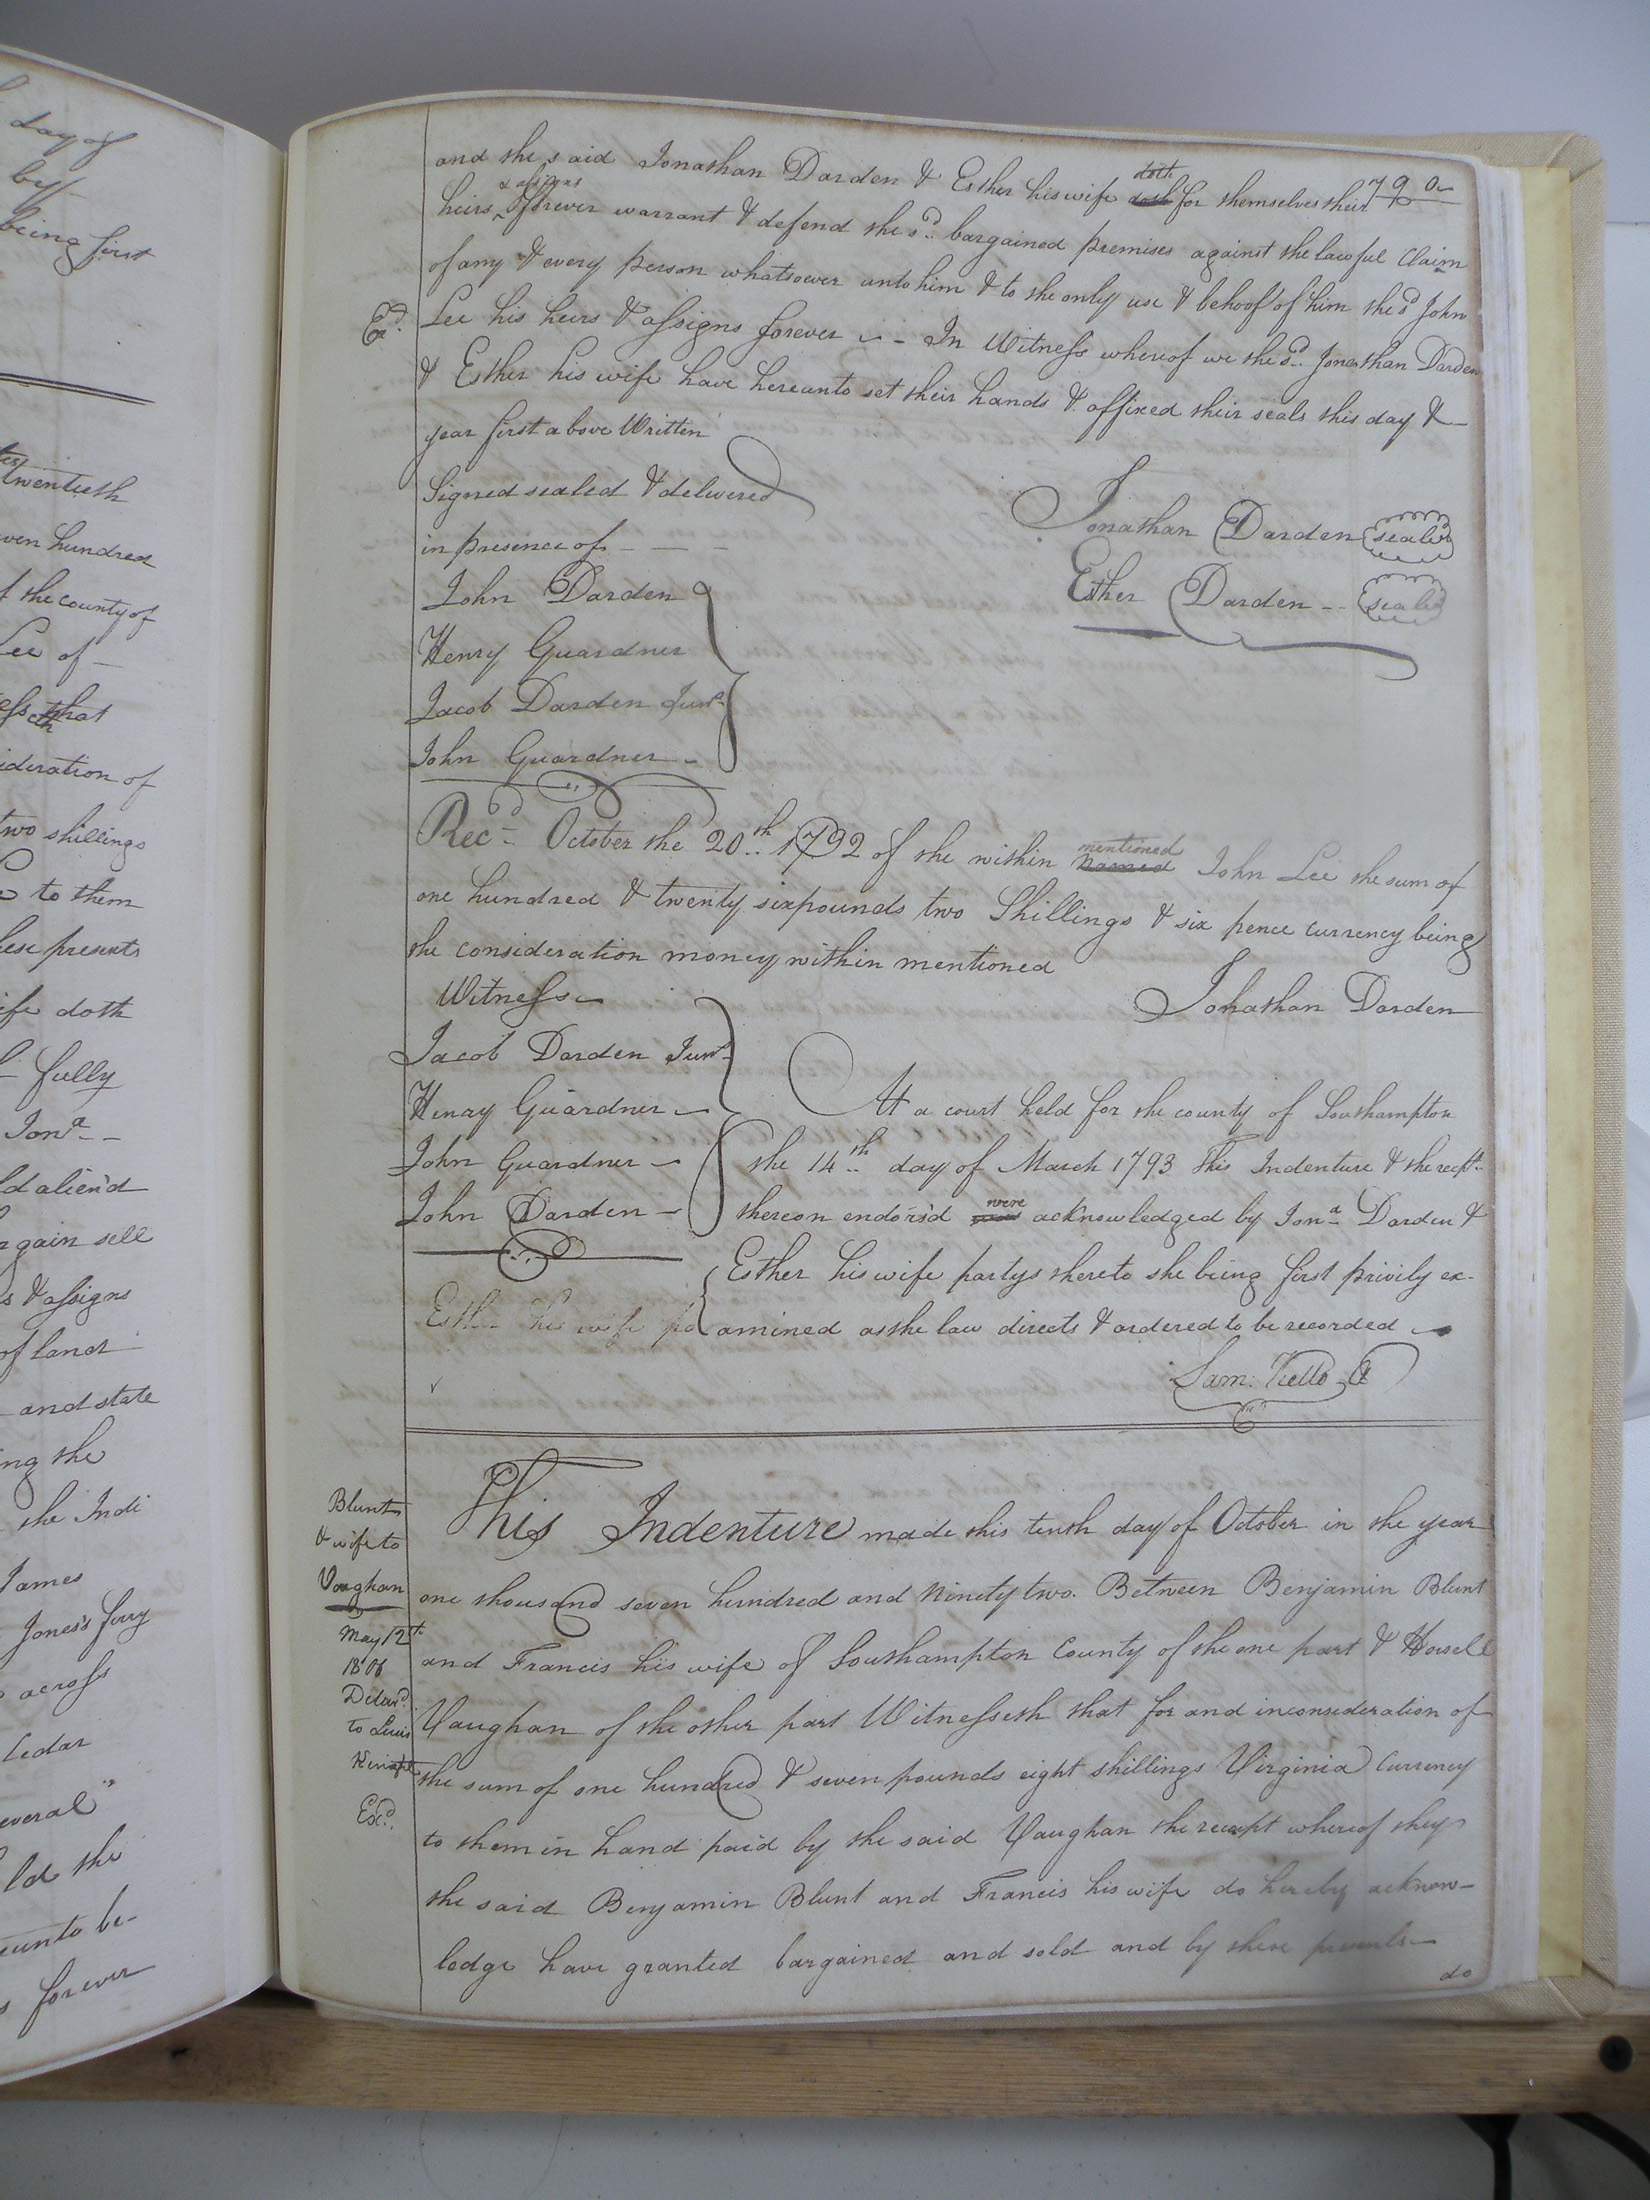 day of
by
being first
twentieth
ven hundred
f the county of
Lee of
ess that
ideration of
two shillings
to them
hese presents
ife doth
fully
Jonª
ld alien'd
gain sell
s & assigns
of land
and state
ing the
the Indi
James
Jones's ferry
across
Cedar
everal
ld the
eunto be-
forever
790
and the said Jonathan Darden & Esther his wife doth for themselves their
heirs & assigns forever warrant & defend the sd. bargained premises against the lawful Claim
of any & every person whatsoever unto him & to the only use & behoof of him the sd John
Exd. Lee his heirs & assigns forever - In Witness whereof we the sd. Jonathan Darden
& Esther his wife have hereunto set their hands & affixed their seals this day &
year first above Written
Signed sealed & delivered
in presence of - - -
Jonathan Darden seal
Esther Darden -- seal
John Darden
Henry Guardner
Jacob Darden Junr.
John Guardner
Recd October the 20th 1792 of the within mentioned John Lee the sum of
one hundred & twenty six pounds two Shillings & six pence currency being
the consideration money within mentioned
Witness
Jonathan Darden
Jacob Darden Junr.
Henry Guardner
John Guardner
John Darden
At a court held for the county of Southampton
the 14th day of March 1793 This Indenture & the recpt.
thereon endors'd were acknowledged by Jonª Darden &
Esther his wife partys thereto she being first privily ex-
Esther his wife pa
amined as the law directs & ordered to be recorded
Sam: Kello Cl
Blunt
& wife to
Vaughan
May 12th
1806
Delivd.
to Lewis
Exd.
This Indenture made this tenth day of October in the year
one thousand seven hundred and Ninety two. Between Benjamin Blunt
and Francis his wife of Southampton County of the one part & Howell
Vaughan of the other part Witnesseth that for and in consideration of
the sum of one hundred & seven pounds eight shillings Virginia Currency
to them in hand paid by the said Vaughan the receipt whereof they
the said Benjamin Blunt and Francis his wife do hereby acknow-
ledge have granted bargained and sold and by these presents
do